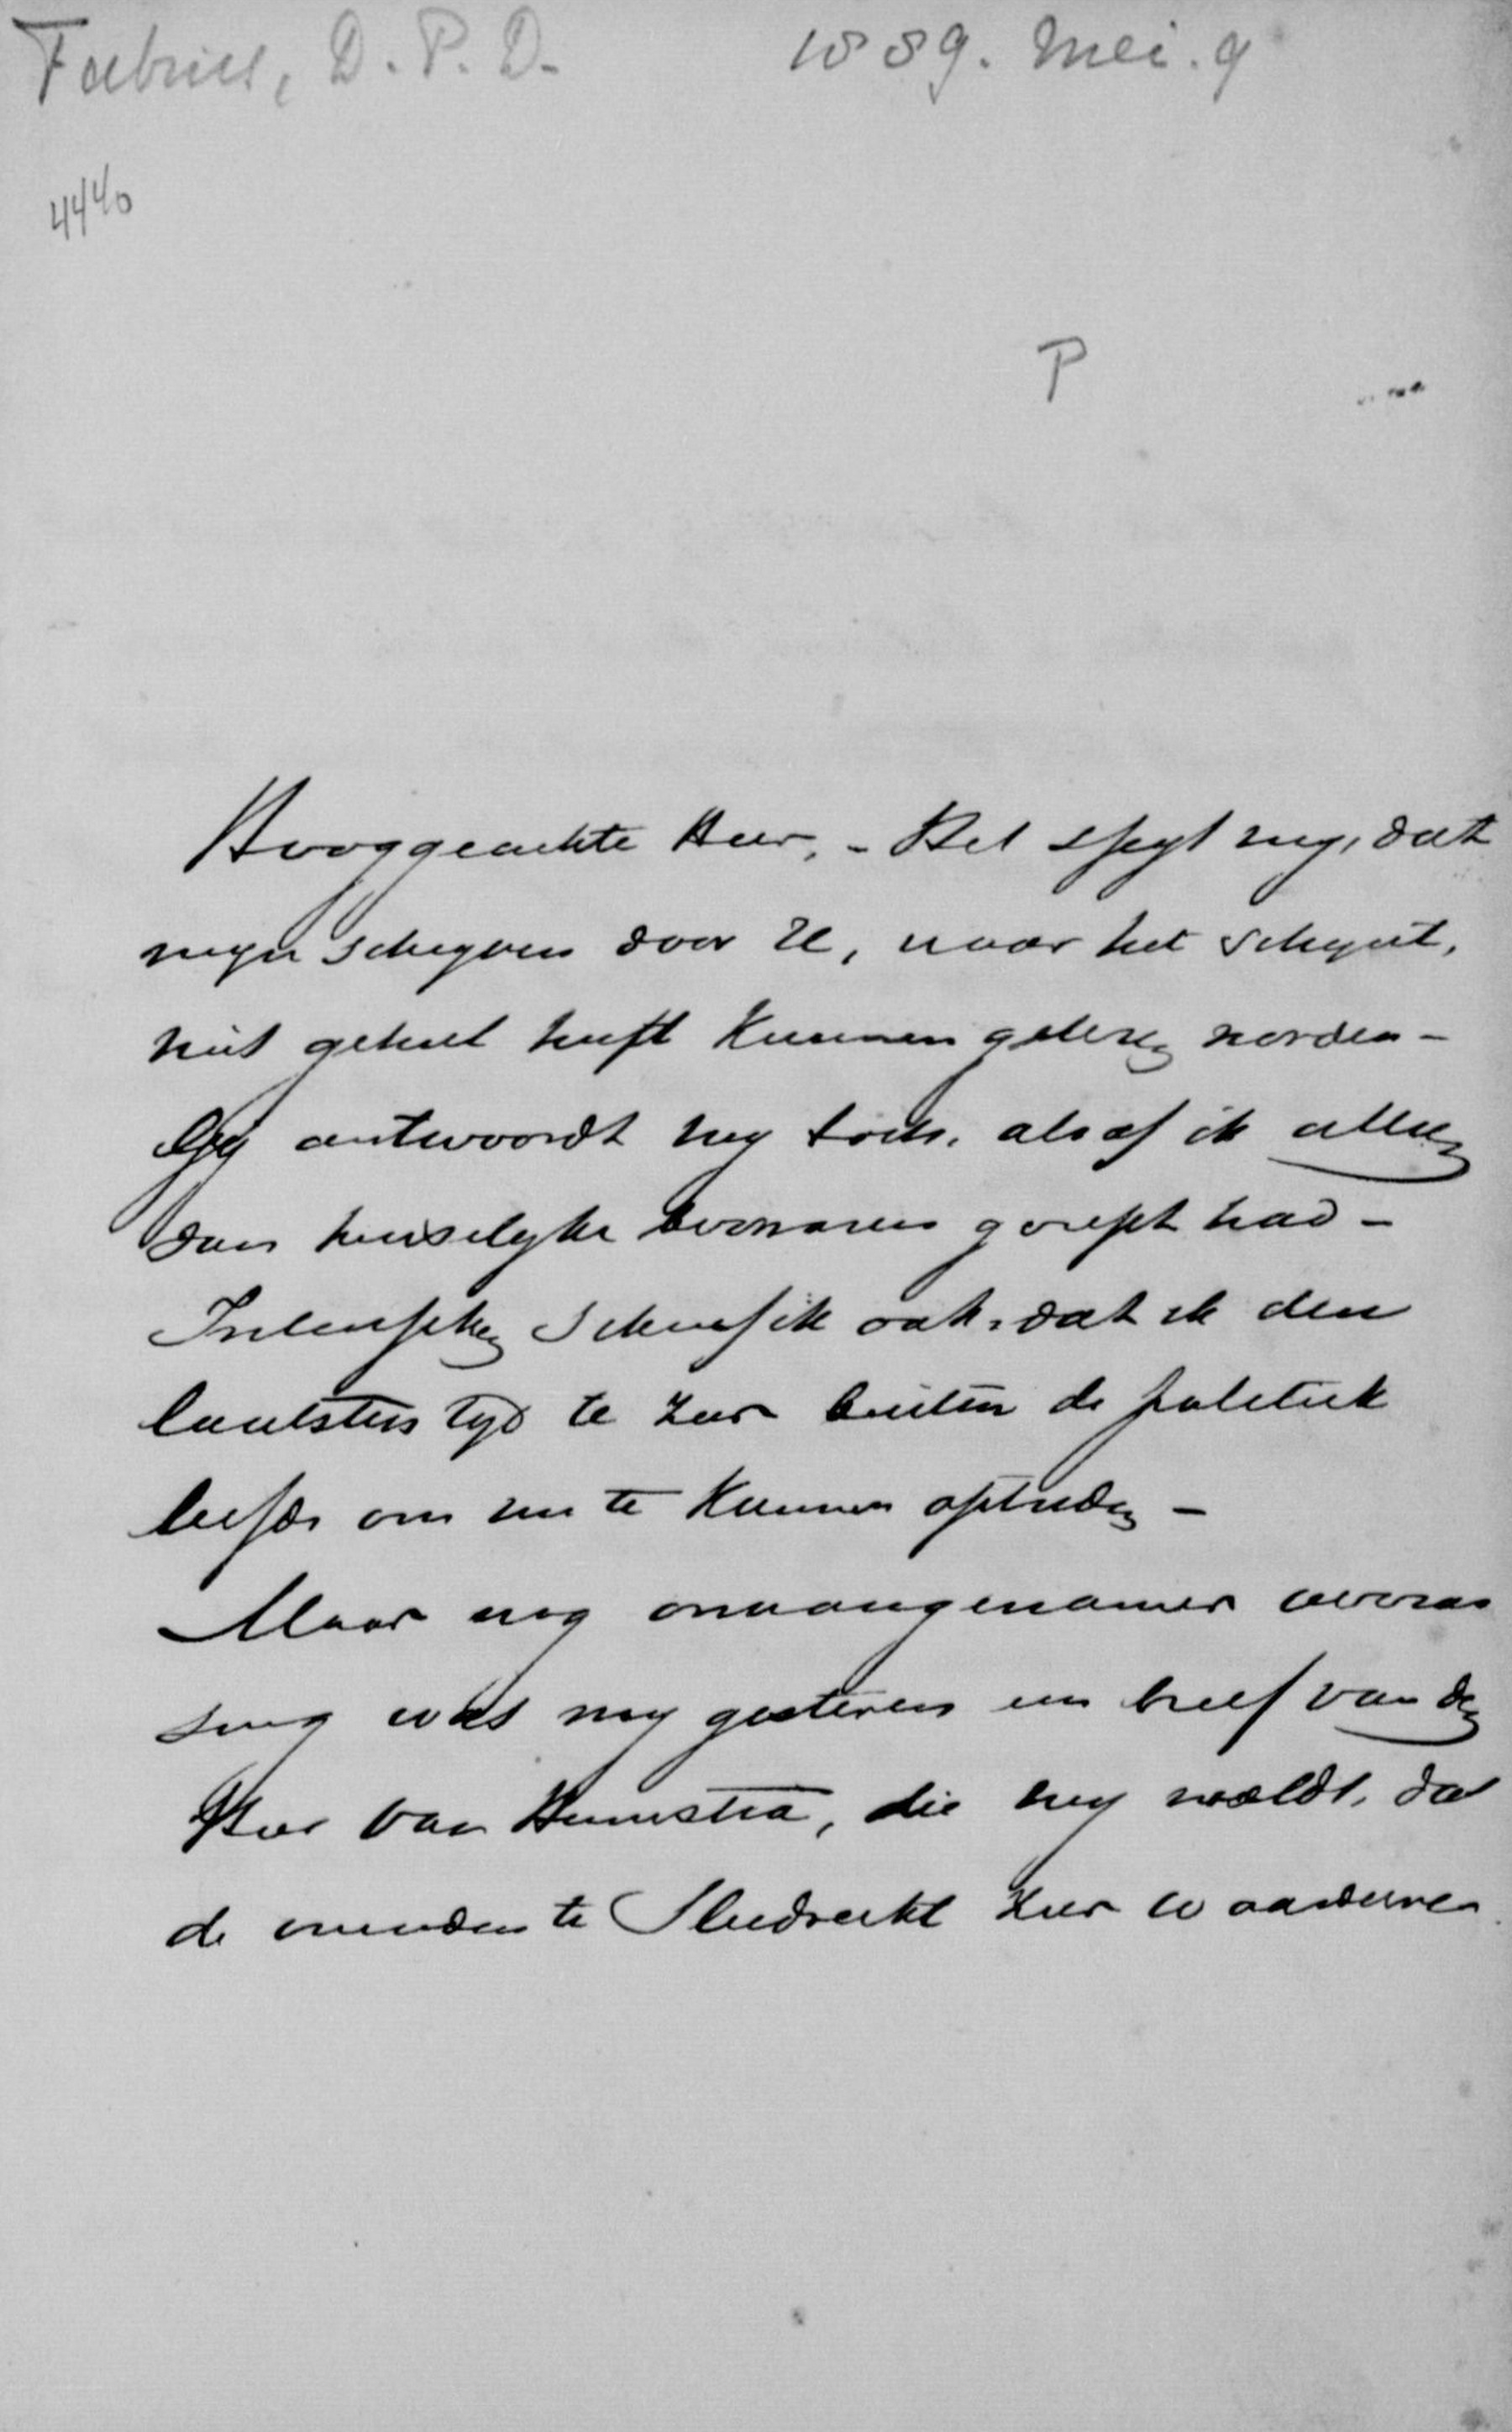 Fabius, D. P. D. 1889. Mei. 9
4440
P
Hooggeachte Heer, - Het spyt my, dat
myn schryven door U, naar het schynt,
niet geheel heeft kunnen gelezen worden -
Gy antwoordt my toch, alsof ik alleen
van huiselyke bezwaren gerept had -
schreef ik ook, dat ik den
laatsten tyd te zeer buiten de politiek
leefde om nu te kunnen optreden -
Maar nog onaangenamer verras
sing was my gisteren een brief van den
Heer van Heemstra, die my meldt, dat
de vrienden te Sliedrecht zeer waarderen